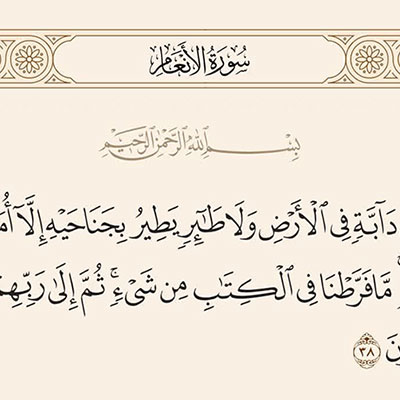 سُورَةُ الأَنْعَام
بِسْمِ اللَّهِ الرَّحْمَٰنِ الرَّحِيمِ
دَآبَّةٖ فِي ٱلۡأَرۡضِ وَلَا طَٰٓئِرٖ يَطِيرُ بِجَنَاحَيۡهِ إِلَّآ
مَّا فَرَّطۡنَا فِي ٱلۡكِتَٰبِ مِن شَيۡءٖۚ ثُمَّ إِلَىٰ
٣٨